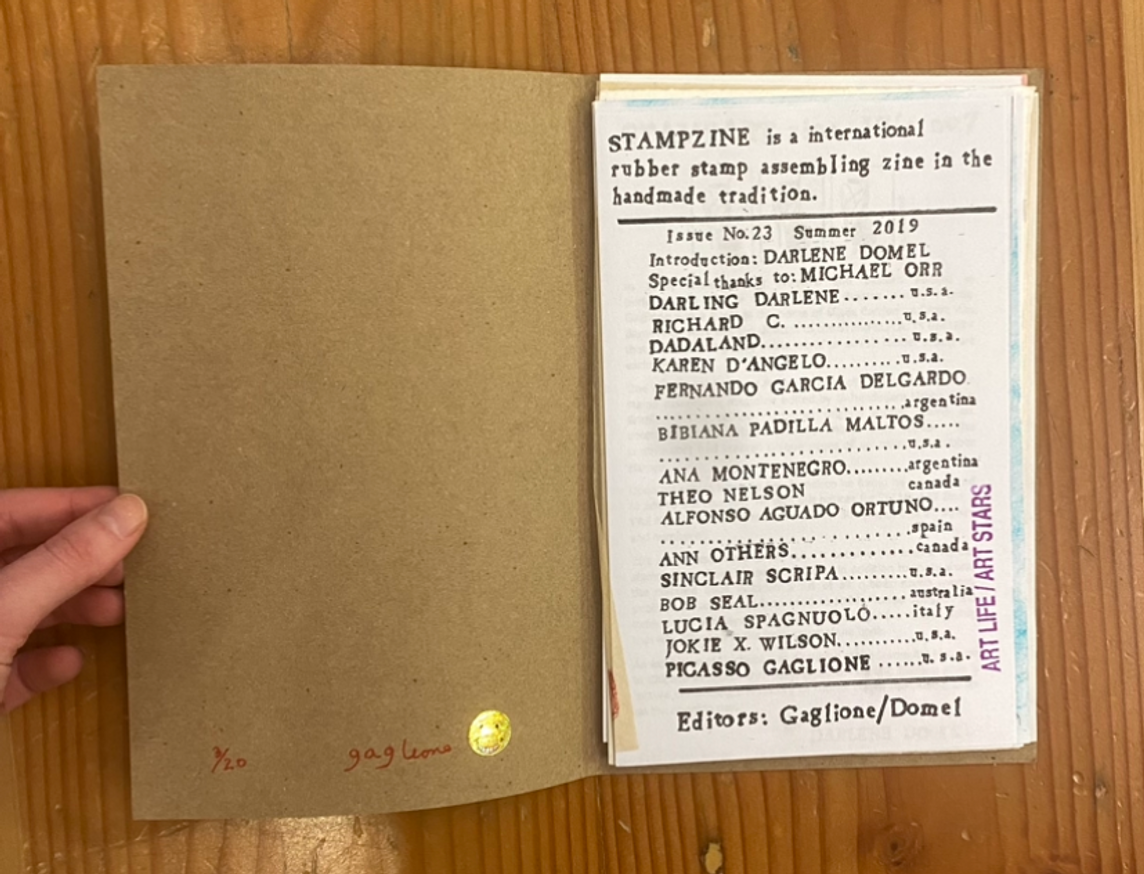 3/20 gaglione
STAMPZINE is a international
rubber stamp assembling zine in the
handmade tradition.
Issue No.23 Summer 2019
Introduction: DARLENE DOMEL
Special thanks to: MICHAEL ORR
DARLING DARLENE....... u.s.a.
RICHARD C. ...............u.s.a.
DADALAND................. u.s.a.
KAREN D'ANGELO..........u.s.a.
FERNANDO GARCIA DELGARDO
.............................argentina
BIBIANA PADILLA MALTOS.....
.............................u.s.a.
ANA MONTENEGRO........argentina
THEO NELSON canada
ALFONSO AGUADO ORTUNO....
.............................spain
ANN OTHERS.............canada
SINCLAIR SCRIPA.........u.s.a.
BOB SEAL.................. australia
LUCIA SPAGNUOLO.....italy
JOKIE X. WILSON..........u.s.a.
PICASSO GAGLIONE ......u.s.a.
Editors: Gaglione/Domel
ART LIFE / ART STARS